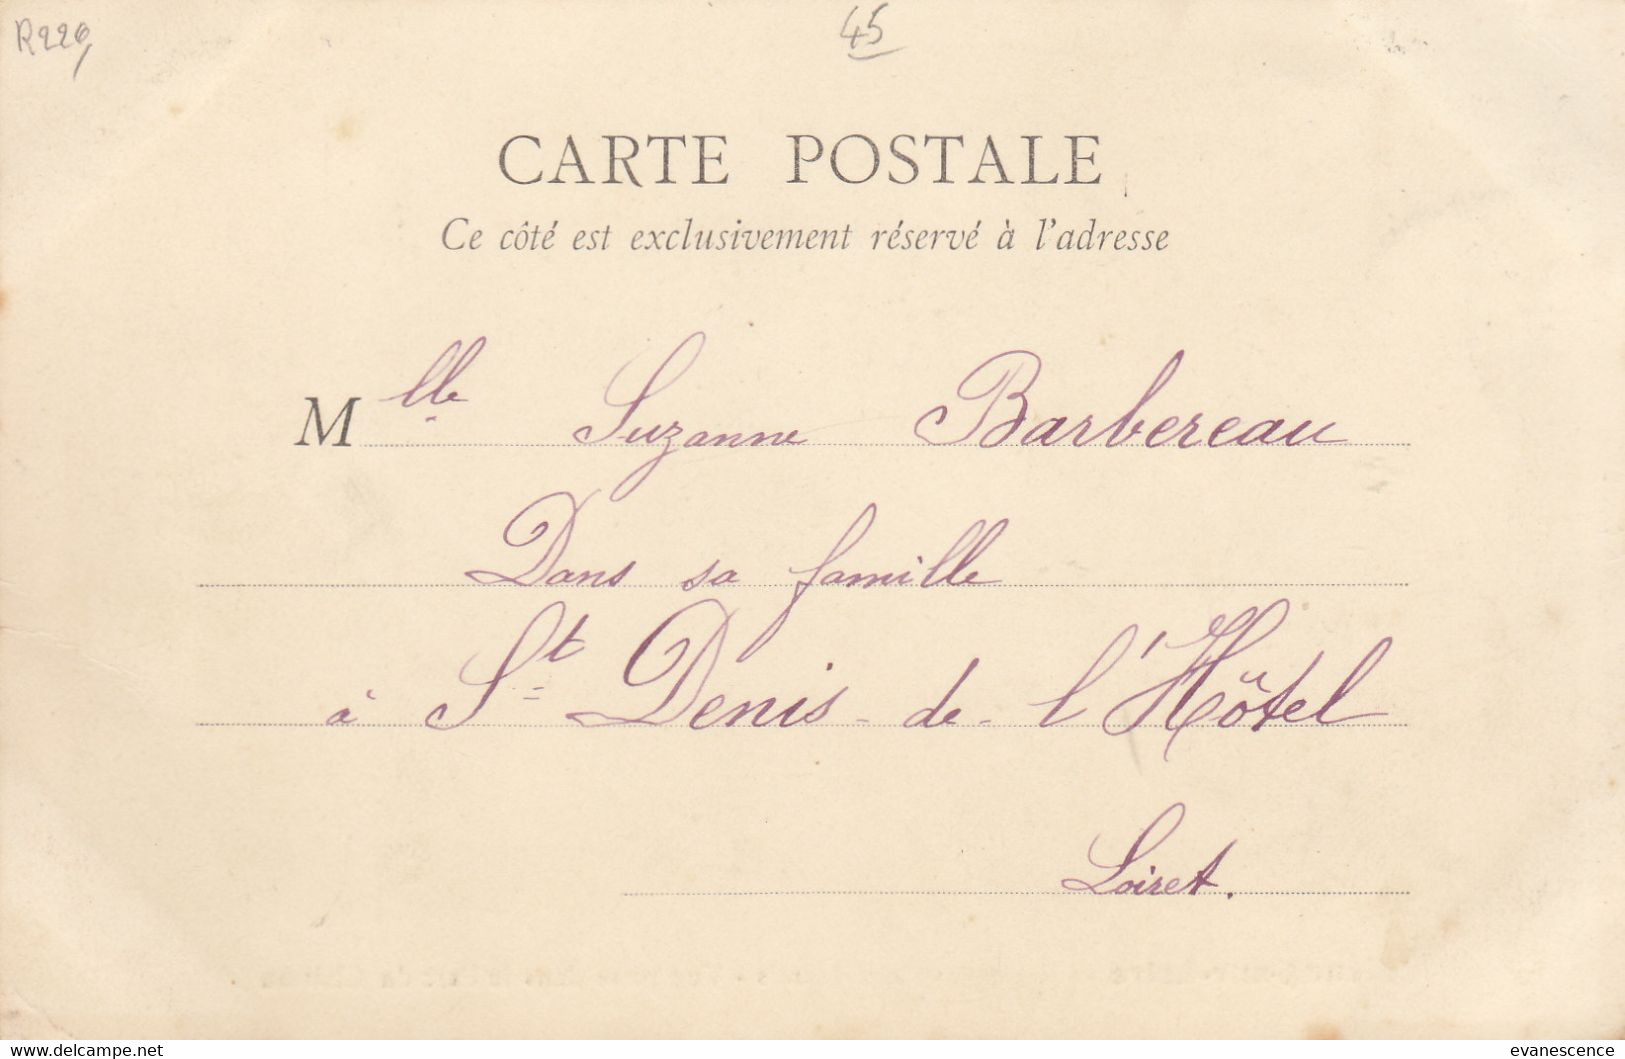 R226
45
CARTE POSTALE
Ce côté est exclusivement réservé à l'adresse
Mlle Suzanne Barbereau
Dans sa famille
à St Denis-de-l'Hôtel
Loiret.
www.delcampe.net
evanescence